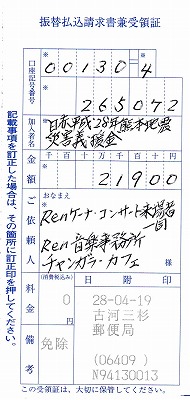 振替払込請求書兼受領証
口座記号番号
00130 4
265072
加入者名
日赤平成28年熊本地震
災害義援金
金額
千 百 十 万 千 百 十 円
21900
ご依頼人
おなまえ
Renケーナ・コンサート来場者
一同
Ren音楽事務所
チャンガラ・カフェ
料金
(消費税込み)
0
円
備考
免除
日附印
28-04-19
古河三杉
郵便局
(06409)
N94130013
この受領証は、大切に保管してください。
記載事項を訂正した場合は、その箇所に訂正印を押してください。